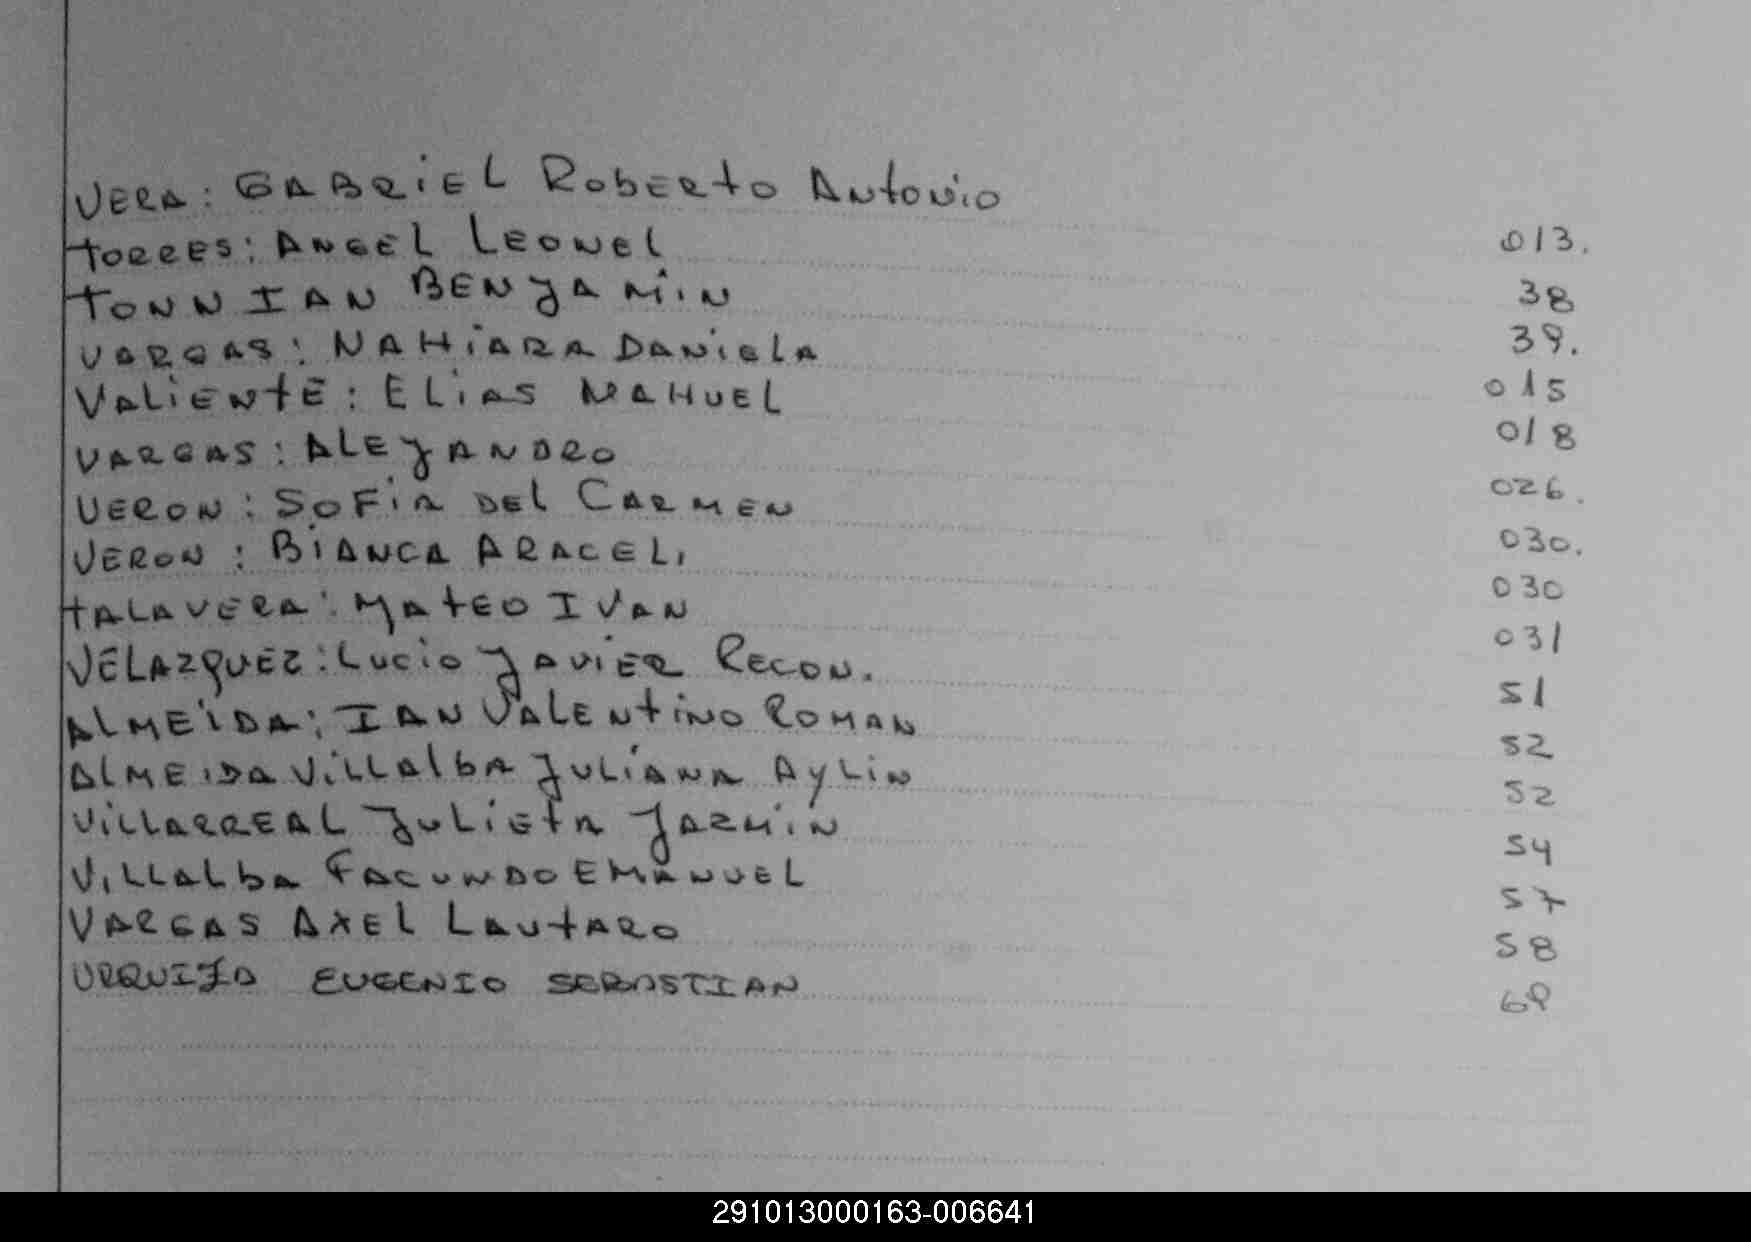 VERA: GABRIEL Roberto Antonio 013.
TORRES: ANGEL LEONEL 38
TONN IAN BENJAMIN 39.
VARGAS: NAHIARA DANIELA 015
VALIENTE: ELIAS NAHUEL 018
VARGAS: ALEJANDRO 026.
VERON: SOFIA DEL CARMEN 030.
VERON: BIANCA ARACELI 030
TALAVERA: MATEO IVAN 031
VELAZQUEZ: LUCIO JAVIER RECON. 51
ALMEIDA: IAN VALENTINO ROMAN 52
ALMEIDA VILLALBA JULIANA AYLIN 52
VILLARREAL JULIETA JAZMIN 54
VILLALBA FACUNDO EMANUEL 57
VARGAS AXEL LAUTARO 58
URQUIZA EUGENIO SEBASTIAN
291013000163-006641